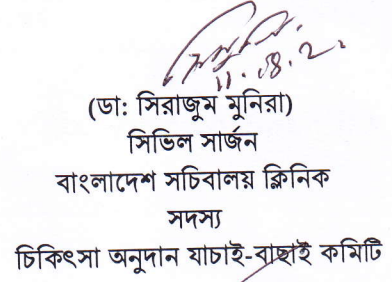 (ডা: সিরাজুম মুনিরা)
সিভিল সার্জন
বাংলাদেশ সচিবালয় ক্লিনিক
সদস্য
চিকিৎসা অনুদান যাচাই-বাছাই কমিটি